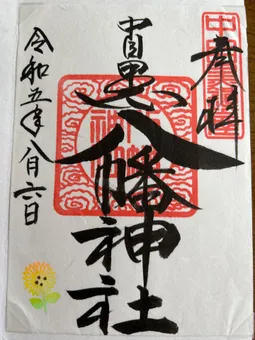 奉拝
中目黒八幡神社
令和五年八月六日